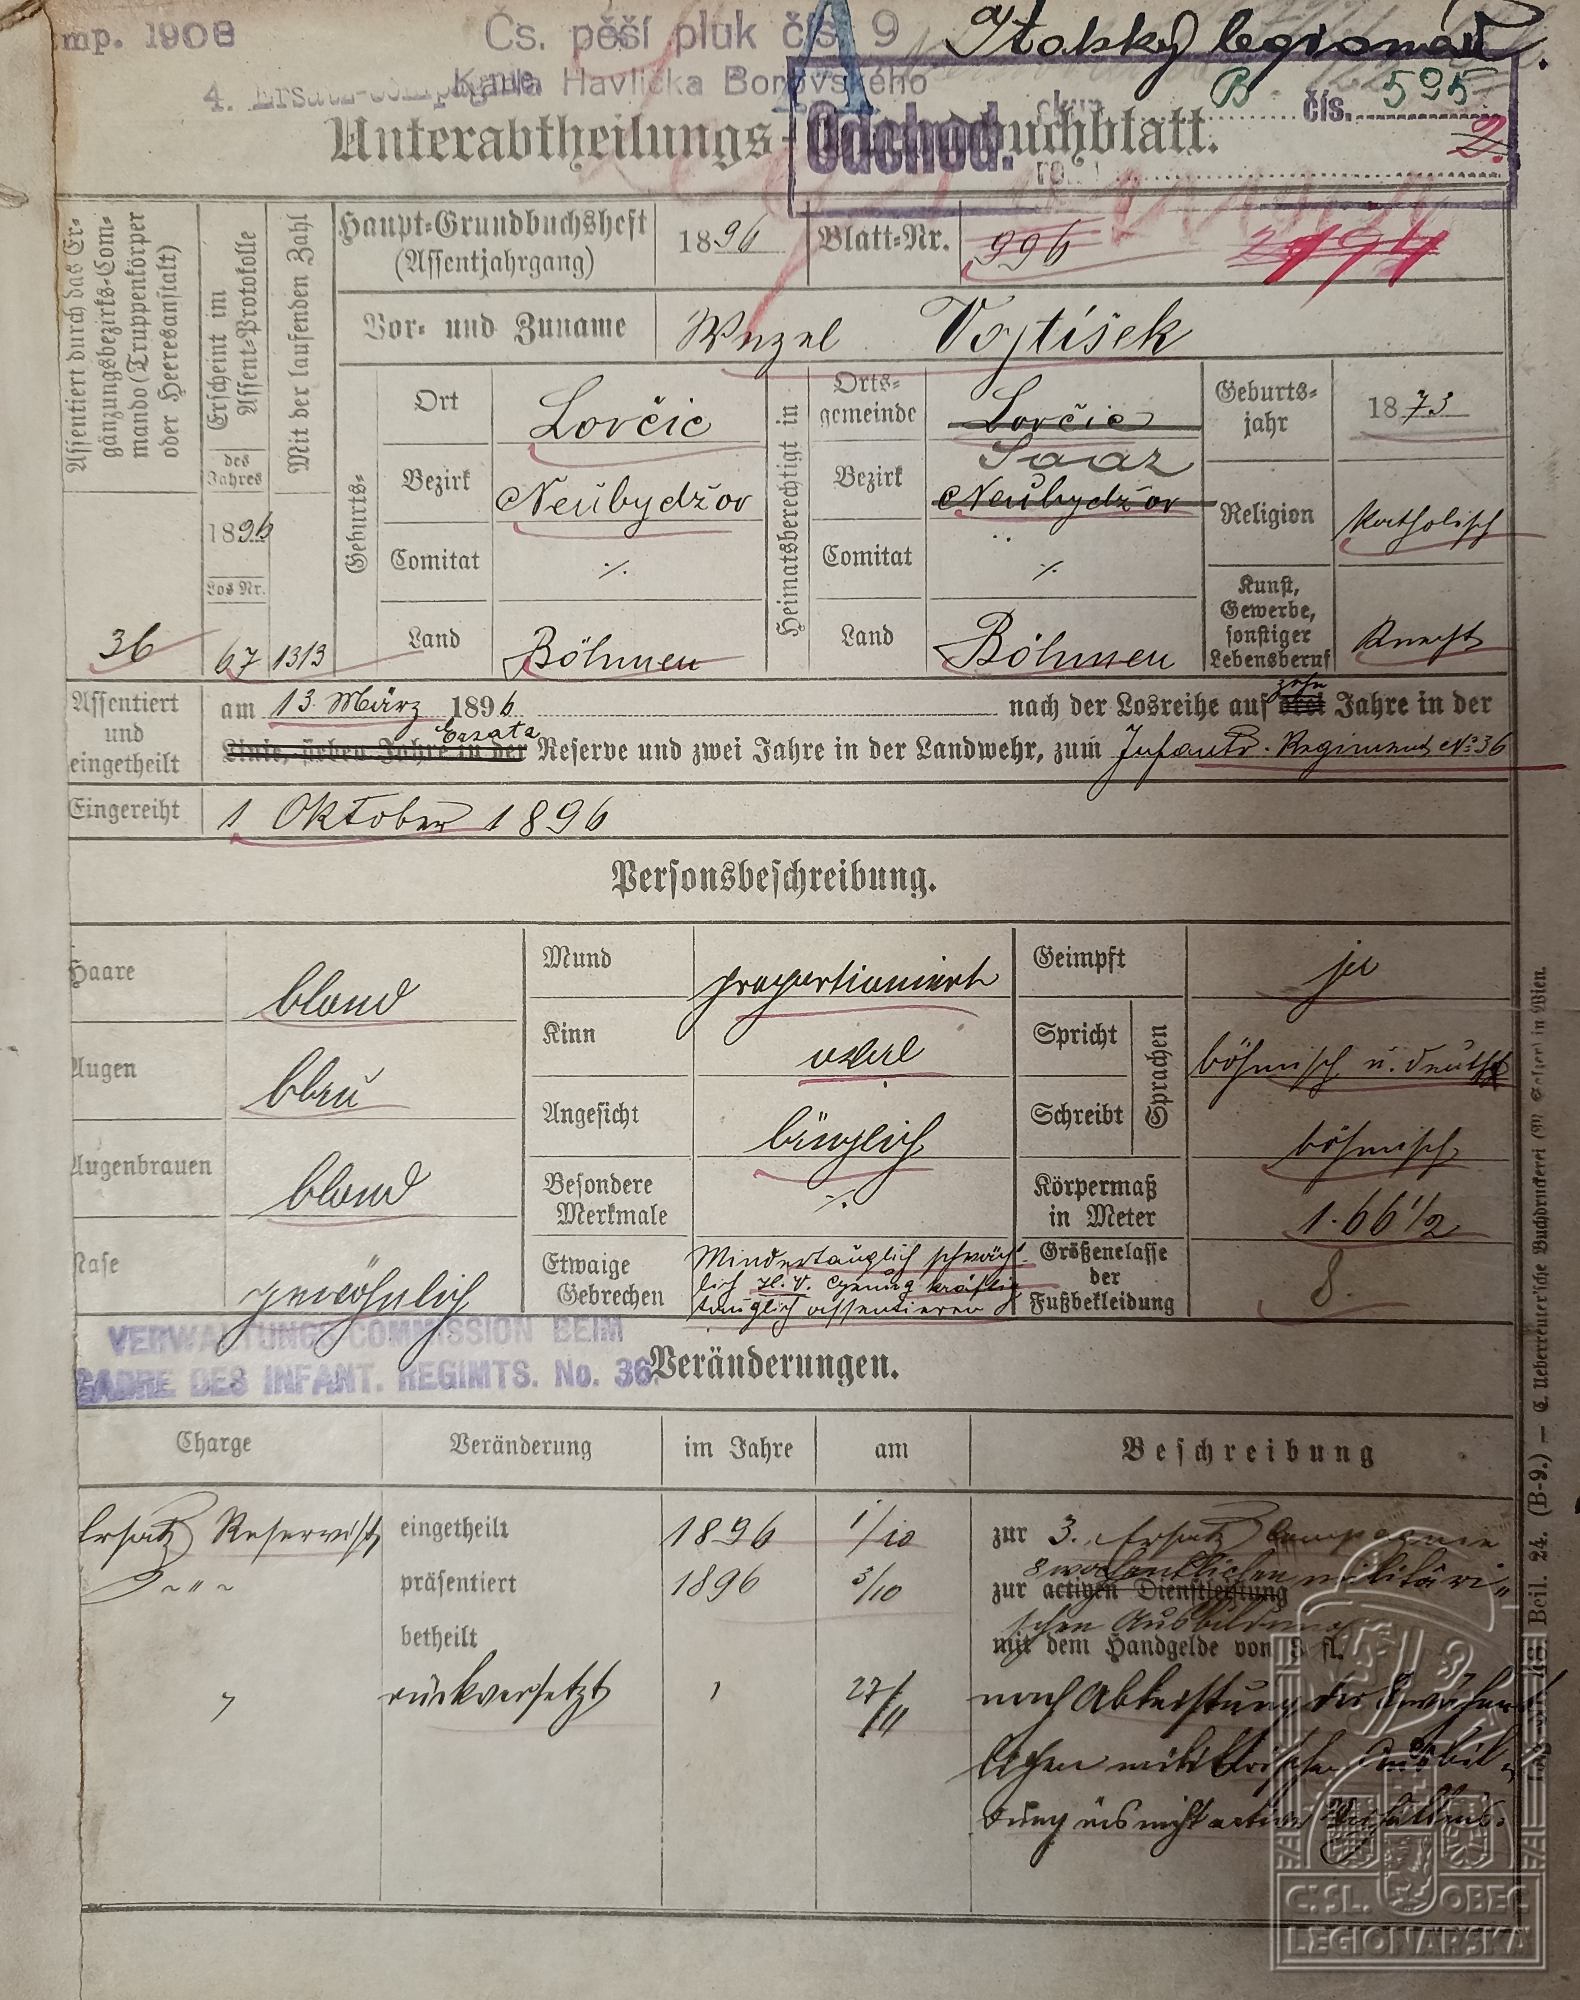 mp. 1908
Čs. pěší pluk čís. 9
Karla Havlíčka Borovského
4. Ersatz-Compagnie
A
Italský legionář.
Odchod.
skup. B čís. 595
roč.
2.
Unterabtheilungs-Grundbuchblatt.
Assentiert durch das Ergänzungsbezirks-Commando (Truppenkörper oder Heeresanstalt)
36
Erscheint im Assent-Protokolle
des Jahres
1896
Los Nr.
67
Mit der laufenden Zahl
1313
Haupt-Grundbuchsheft (Assentjahrgang) 1896 Blatt-Nr. 996
Vor- und Zuname Wenzel Vojtíšek
Geburts-
Ort Lovčic
Bezirk Neubydžov
Comitat ./.
Land Böhmen
Heimatsberechtigt in
Ortsgemeinde Lovčic
Saaz
Bezirk Neubydžov
Comitat ./.
Land Böhmen
Geburtsjahr 1873
Religion katholisch
Kunst, Gewerbe, sonstiger Lebensberuf Knecht
Assentiert und eingetheilt
am 13. März 1896 nach der Losreihe auf drei zehn Jahre in der
Linie, sieben Jahre in der Ersatz Reserve und zwei Jahre in der Landwehr, zum Infant. Regiment No 36
Eingereiht 1 Oktober 1896
Personsbeschreibung.
Haare blond
Augen blau
Augenbrauen blond
Nase gewöhnlich
Mund proportioniert
Kinn oval
Angesicht länglich
Besondere Merkmale ./.
Etwaige Gebrechen Mindertauglich schwäch-
lich
tauglich assentieren
Geimpft ja
Spricht Sprachen böhmisch u. deutsch
Schreibt böhmisch
Körpermaß in Meter 1.66 1/2
Größenclasse der Fußbekleidung 8.
VERWALTUNGS-COMMISSION BEIM
CADRE DES INFANT. REGIMTS. No. 36.
Veränderungen.
Charge Veränderung im Jahre am Beschreibung
Ersatz Reservist eingetheilt 1896 1/10 zur 3. Ersatz Compagnie
präsentiert 1896 3/10 zur activen Dienstleistung
8 wochentlichen militäri-
schen Ausbildung
betheilt mit dem Handgelde von 3 fl.
rückversetzt 27/11 nach Ableistung der 8 wöchent
lichen militärischen Ausbil-
dung ins nicht active Verhältnis.
(B-9.) — C. Ueberreuter'sche Buchdruckerei (M. Salzer) in Wien.
Beil. 24.
Č.SL. OBEC
LEGIONÁŘSKÁ